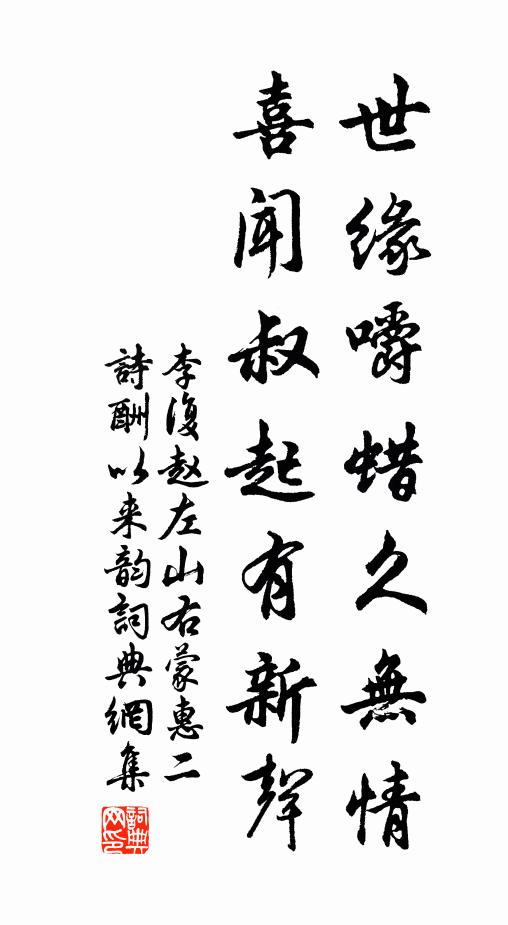 世緣嚼蜡久無情
喜闻叔起有新聲
李復赵左山右蒙惠二
詩酬以来韵詞典網集
詞典
网印